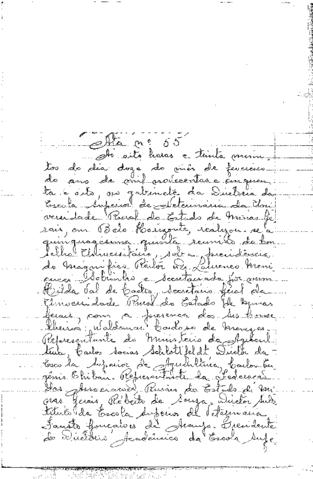 Ata nº 55
Às oito horas e trinta minu-
tos do dia doze do mês de fevereiro
do ano de mil novecentos e cinquen-
ta e oito, no gabinete da Diretoria da
Escola Superior de Veterinária da Uni-
versidade Rural do Estado de Minas Ge-
rais, em Belo Horizonte, realizou-se a
quinquagésima quinta reunião do Con-
selho Universitário, sob a Presidência
do Magnífico Reitor Dr. Lourenco Meni-
cucci Sobrinho e secretariada por mim
Val de Castro, Secretário Geral da
Universidade Rural do Estado de Minas
Gerais, com a presença dos srs. Conse-
lheiros: Waldemar Cardoso de Menezes,
Representante do Ministério da Agricul-
tura, Carlos Socias Schlottfeldt Diretor da
Escola Superior de Agricultura, Carlos Eu-
gênio Representante da Federação
das Associações Rurais do Estado de Mi-
nas Gerais, Roberto de Souza, Diretor Subs-
tituto da Escola Superior de Veterinária
Fausto Gonçalves de Araujo, Presidente
do Diretório Acadêmico da Escola Supe-